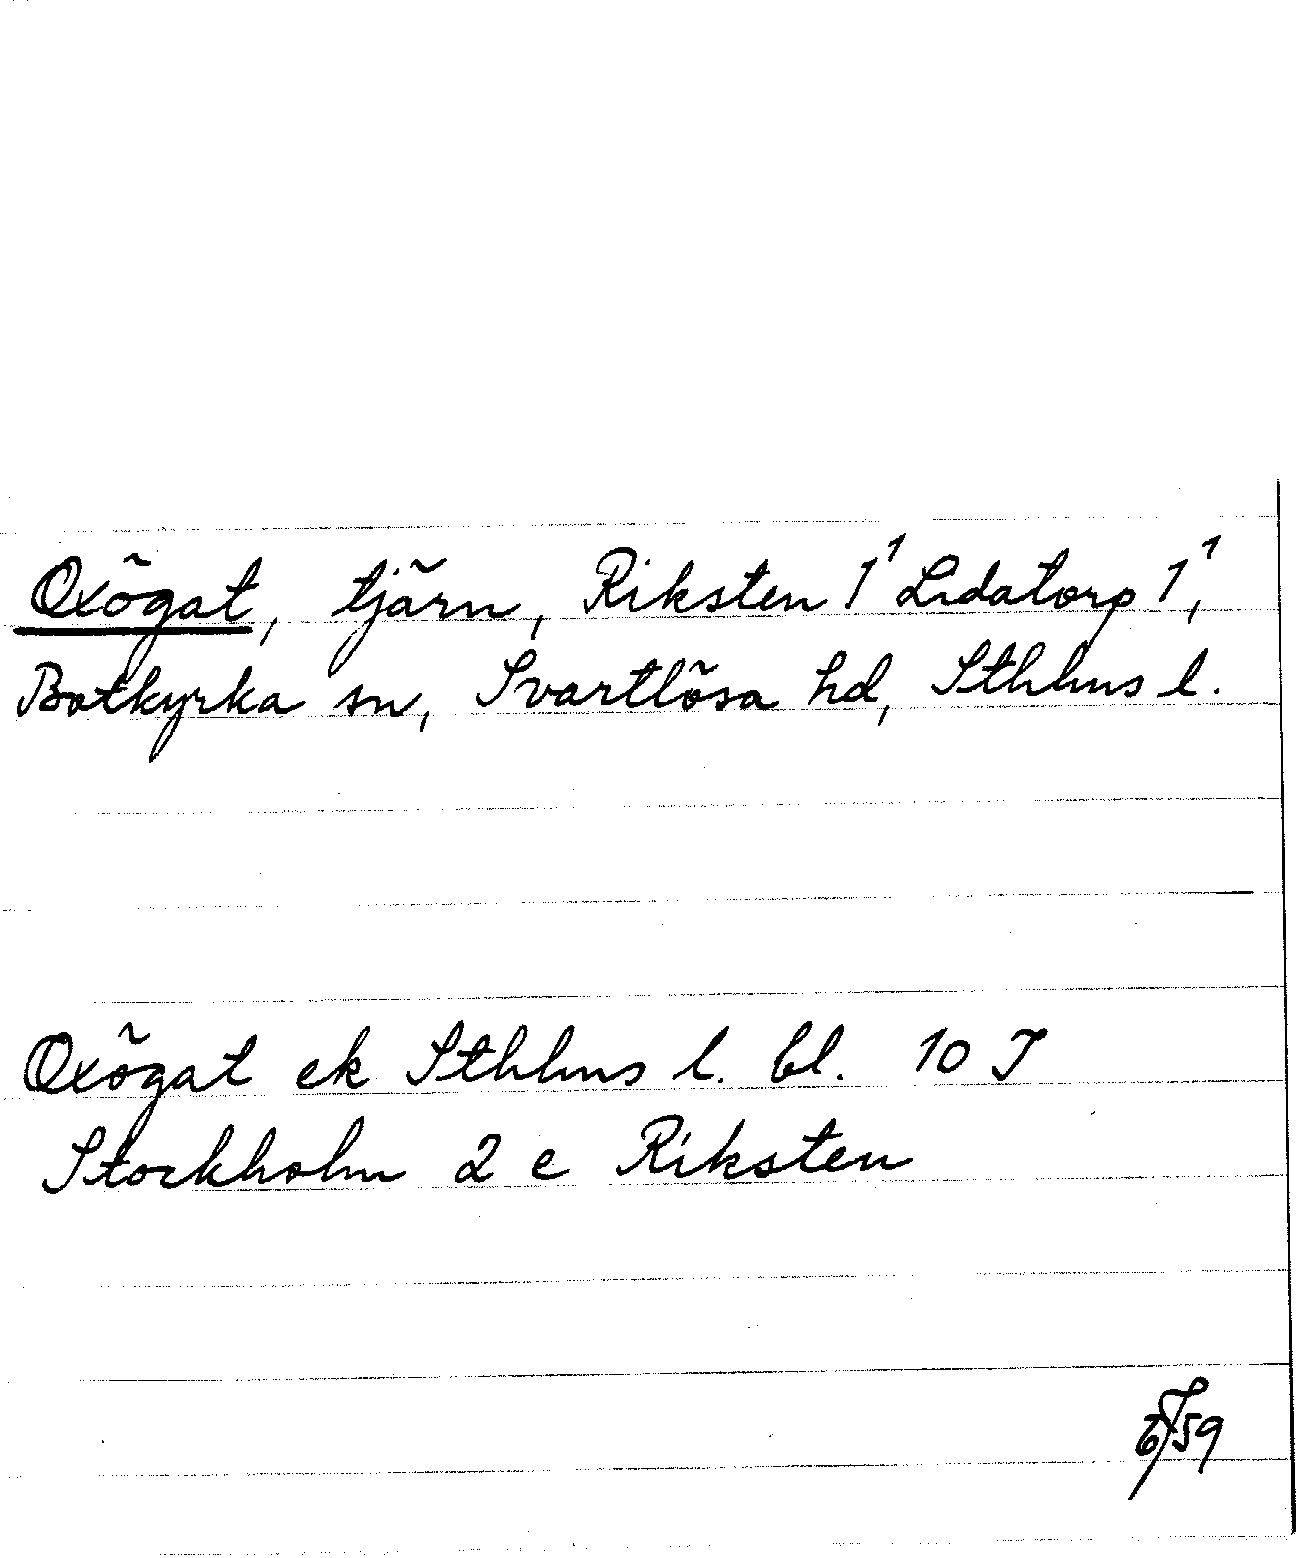 Oxögat, tjärn, Riksten 1¹ Lidatorp 1¹,
Botkyrka sn, Svartlösa hd, Sthlms l.
Oxögat ek Sthlms l. bl. 10 J
Stockholm 2 e Riksten